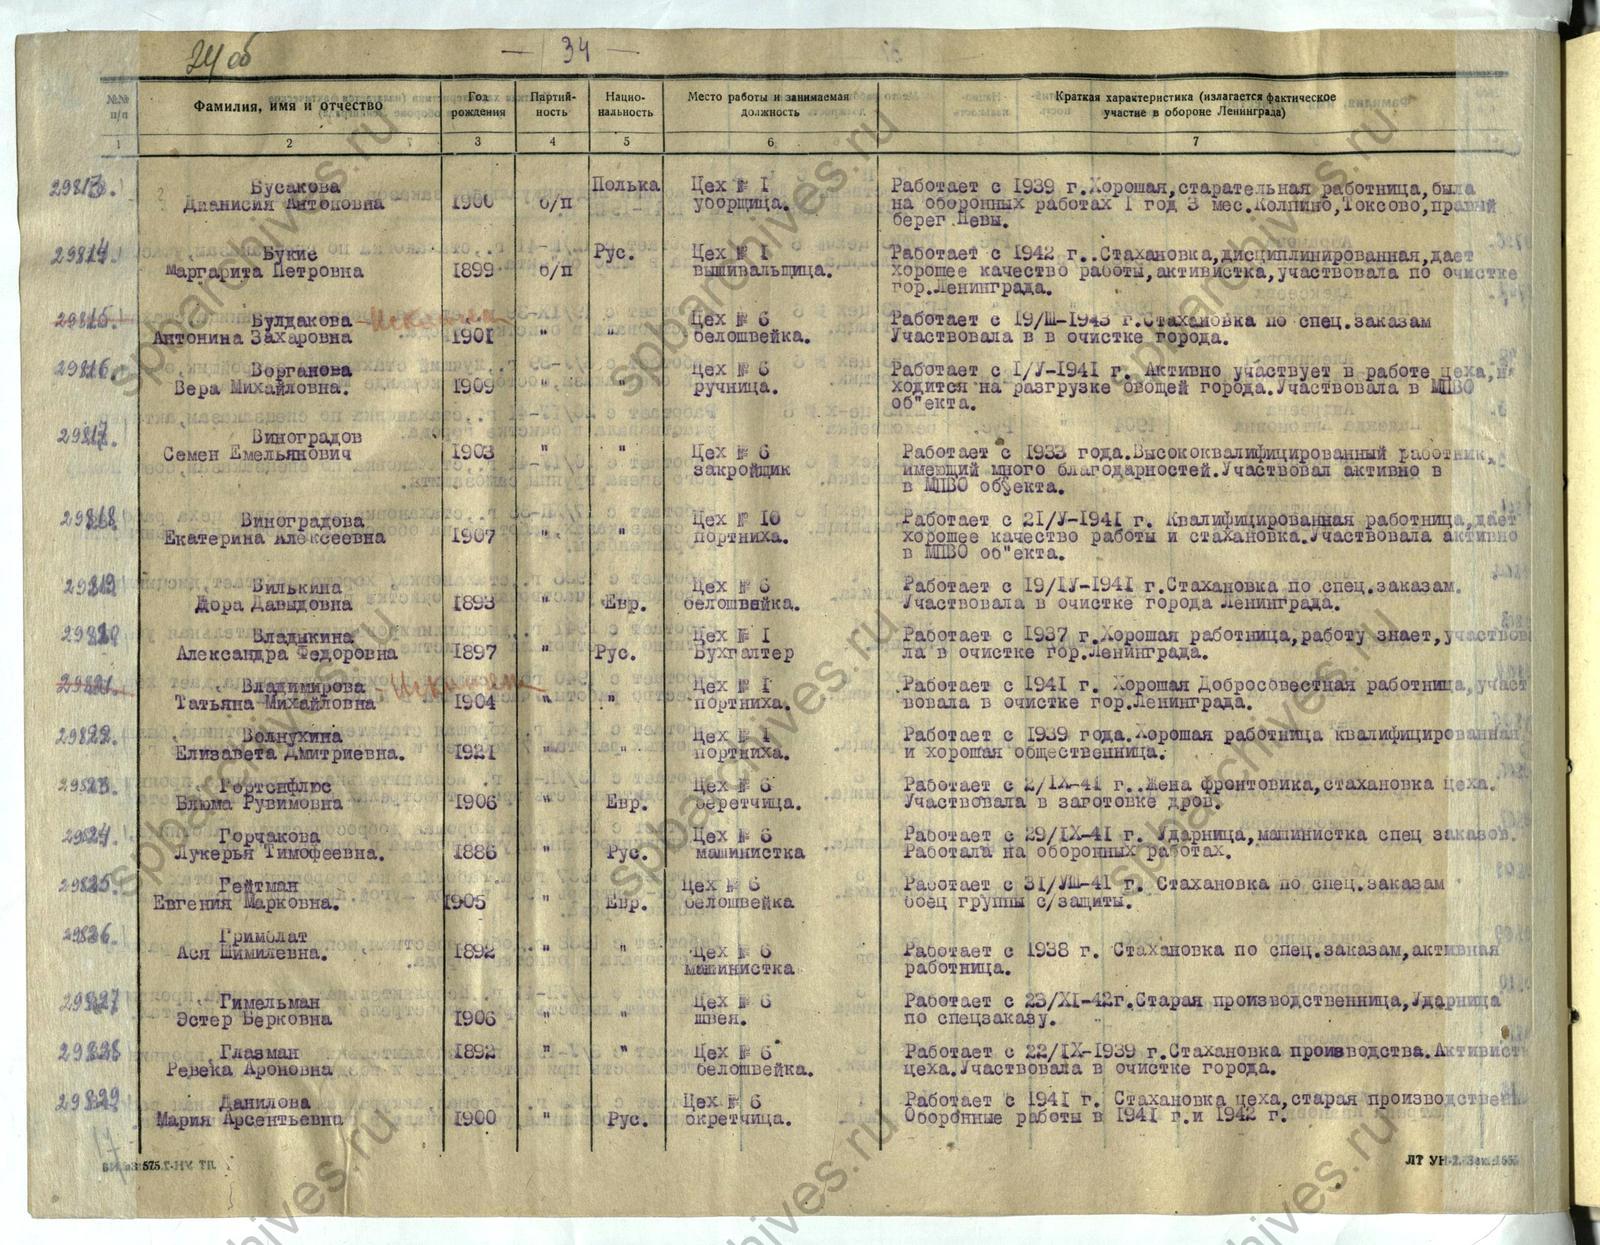 24 об
— 34 —
№№ п/п
Фамилия, имя и отчество
Год рождения
Партий-ность
Нацио-нальность
Место работы и занимаемая должность
Краткая характеристика (излагается фактическое участие в обороне Ленинграда)
1 2 3 4 5 6 7
29813. Бусакова Полька Цех № 1 Работает с 1939 г.Хорошая,старательная работница,была
Дианисия Антоновна 1900 б/п уборщица. на оборонных работах 1 год 3 мес.Колпино,Токсово,правый
берег Невы.
29814. Букие Рус. Цех № 1 Работает с 1942 г..Стахановка,дисциплинированная,дает
Маргарита Петровна 1899 б/п вышивальщица. хорошее качество работы,активистка,участвовала по очистке
гор.Ленинграда.
29815. Булдакова - Исключен Цех № 6 Работает с 19/Ш-1943 г.Стахановка по спец.заказам
Антонина Захаровна 1901 " " белошвейка. Участвовала в в очистке города.
29816. Ворганова Цех № 6 Работает с 1/У-1941 г. Активно участвует в работе цеха,на
Вера Михайловна. 1909 " " ручница. ходится на разгрузке овощей города.Участвовала в МПВО
об"екта.
29817. Виноградов
Семен Емельянович 1903 " " Цех № 6 Работает с 1933 года.Высококвалифицированный работник,
закройщик имеющий много благодарностей.Участвовал активно в
в МПВО объекта.
29818. Виноградова Цех № 10 Работает с 21/У-1941 г. Квалифицированная работница,дает
Екатерина Алексеевна 1907 " " портниха. хорошее качество работы и стахановка.Участвовала активно
в МПВО об"екта.
29819 Вилькина Цех № 6 Работает с 19/1У-1941 г.Стахановка по спец.заказам.
Дора Давыдовна 1893 " Евр. белошвейка. Участвовала в очистке города Ленинграда.
29820 Владыкина Цех № 1 Работает с 1937 г.Хорошая работница,работу знает,участвов
Александра Федоровна 1897 " Рус. Бухгалтер ла в очистке гор.Ленинграда.
29821. Владимирова - Исключен Цех № 1 Работает с 1941 г. Хорошая Добросовестная работница,участ
Татьяна Михайловна 1904 " " портниха. вовала в очистке гор.Ленинграда.
29822. Волнухина Цех № 1 Работает с 1939 года.Хорошая работница квалифицированная
Елизавета Дмитриевна. 1921 " " портниха. и хорошая общественница.
29823. Гортонфлюс Цех № 6 Работает с 2/IX-41 г..Жена фронтовика,стахановка цеха.
Блюма Рувимовна 1906 " Евр. беретчица. Участвовала в заготовке дров.
29824. Горчакова Цех № 6 Работает с 29/IX-41 г. Ударница,машинистка спец заказов.
Лукерья Тимофеевна. 1886 " Рус. машинистка Работала на оборонных работах.
29825. Гейтман Цех № 6 Работает с 31/УШ-41 г. Стахановка по спец.заказам
Евгения Марковна. 1905 " Евр. белошвейка боец группы с/защиты.
29826. Гримблат
Ася Шимилевна. 1892 " " Цех № 6 Работает с 1938 г. Стахановка по спец.заказам,активная
машинистка работница.
29827 Гимельман Цех № 6 Работает с 23/XI-42г.Старая производственница,Ударница
Эстер Берковна 1906 " " швея. по спецзаказу.
29828 Глазман 1892 " " Цех № 6 Работает с 22/IX-1939 г.Стахановка производства.Активист
Ревека Ароновна белошвейка. цеха.Участвовала в очистке города.
29829 Данилова Цех № 6 Работает с 1941 г. Стахановка цеха,старая производствен
Мария Арсентьевна 1900 " Рус. окретчица. Оборонные работы в 1941 г.и 1942 г.
17
ЛТ УН
spbarchives.ru